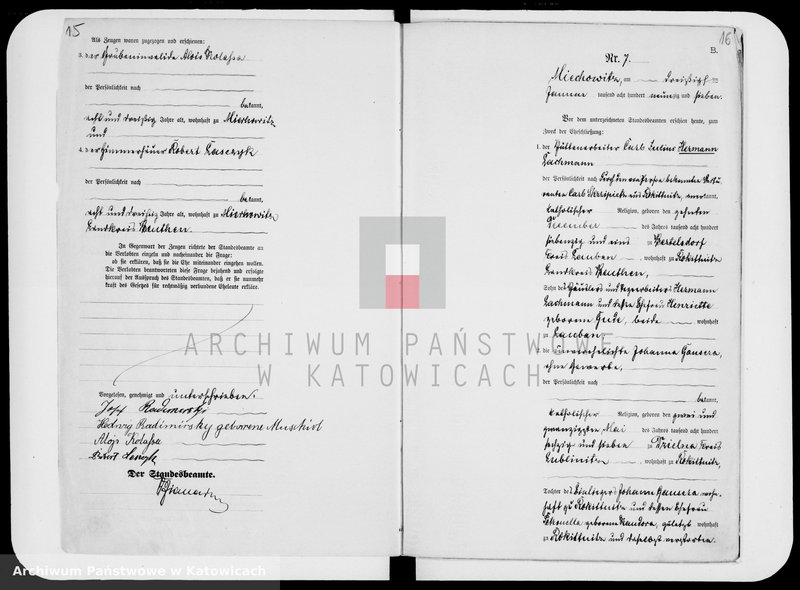 15
Als Zeugen waren zugezogen und erschienen:
3. der Grubeninvalide Alois Kolassa
der Persönlichkeit nach
bekannt,
acht und dreißig Jahre alt, wohnhaft zu Miechowitz
und
4. der Zimmerhäuer Robert
der Persönlichkeit nach
bekannt,
acht und dreißig Jahre alt, wohnhaft zu Miechowitz
Landkreis Beuthen.
In Gegenwart der Zeugen richtete der Standesbeamte an
die Verlobten einzeln und nacheinander die Frage:
ob sie erklären, daß sie die Ehe miteinander eingehen wollen.
Die Verlobten beantworteten diese Frage bejahend und erfolgte
hierauf der Ausspruch des Standesbeamten, daß er sie nunmehr
kraft des Gesetzes für rechtmäßig verbundene Eheleute erkläre.
Vorgelesen, genehmigt und unterschrieben.
Josef Radimersky
Hedwig Radimirsky geborene
Alojs Kolassa
Der Standesbeamte.
16
B.
Nr. 7.
Miechowitz, am dreißigsten
Januar tausend acht hundert neunzig und sieben.
Vor dem unterzeichneten Standesbeamten erschien heute, zum
Zweck der Eheschließung:
1. der Hüttenarbeiter Carl Julius Hermann
Lachmann
der Persönlichkeit nach durch den von Person bekannten
Carl aus Rokittnitz, anerkannt,
katholischer Religion, geboren den zehnten
December des Jahres tausend acht hundert
siebenzig und eins zu
Kreis Lauban, wohnhaft zu Rokittnitz
Landkreis Beuthen,
Sohn des Häuslers und Hermann
Lachmann und dessen Ehefrau Henriette
geborene beide wohnhaft
zu Lauban
2. die unverehelichte Johanna
ohne Gewerbe,
der Persönlichkeit nach
bekannt,
katholischer Religion, geboren den zwei und
zwanzigsten Mai des Jahres tausend acht hundert
sechzig und sieben zu Kreis
Lublinitz, wohnhaft zu Rokittnitz,
Tochter des Johann
zu Rokittnitz und dessen Ehefrau
geborene zuletzt wohnhaft
zu Rokittnitz und daselbst verstorben.
ARCHIWUM PAŃSTWOWE
W KATOWICACH
Archiwum Państwowe w Katowicach